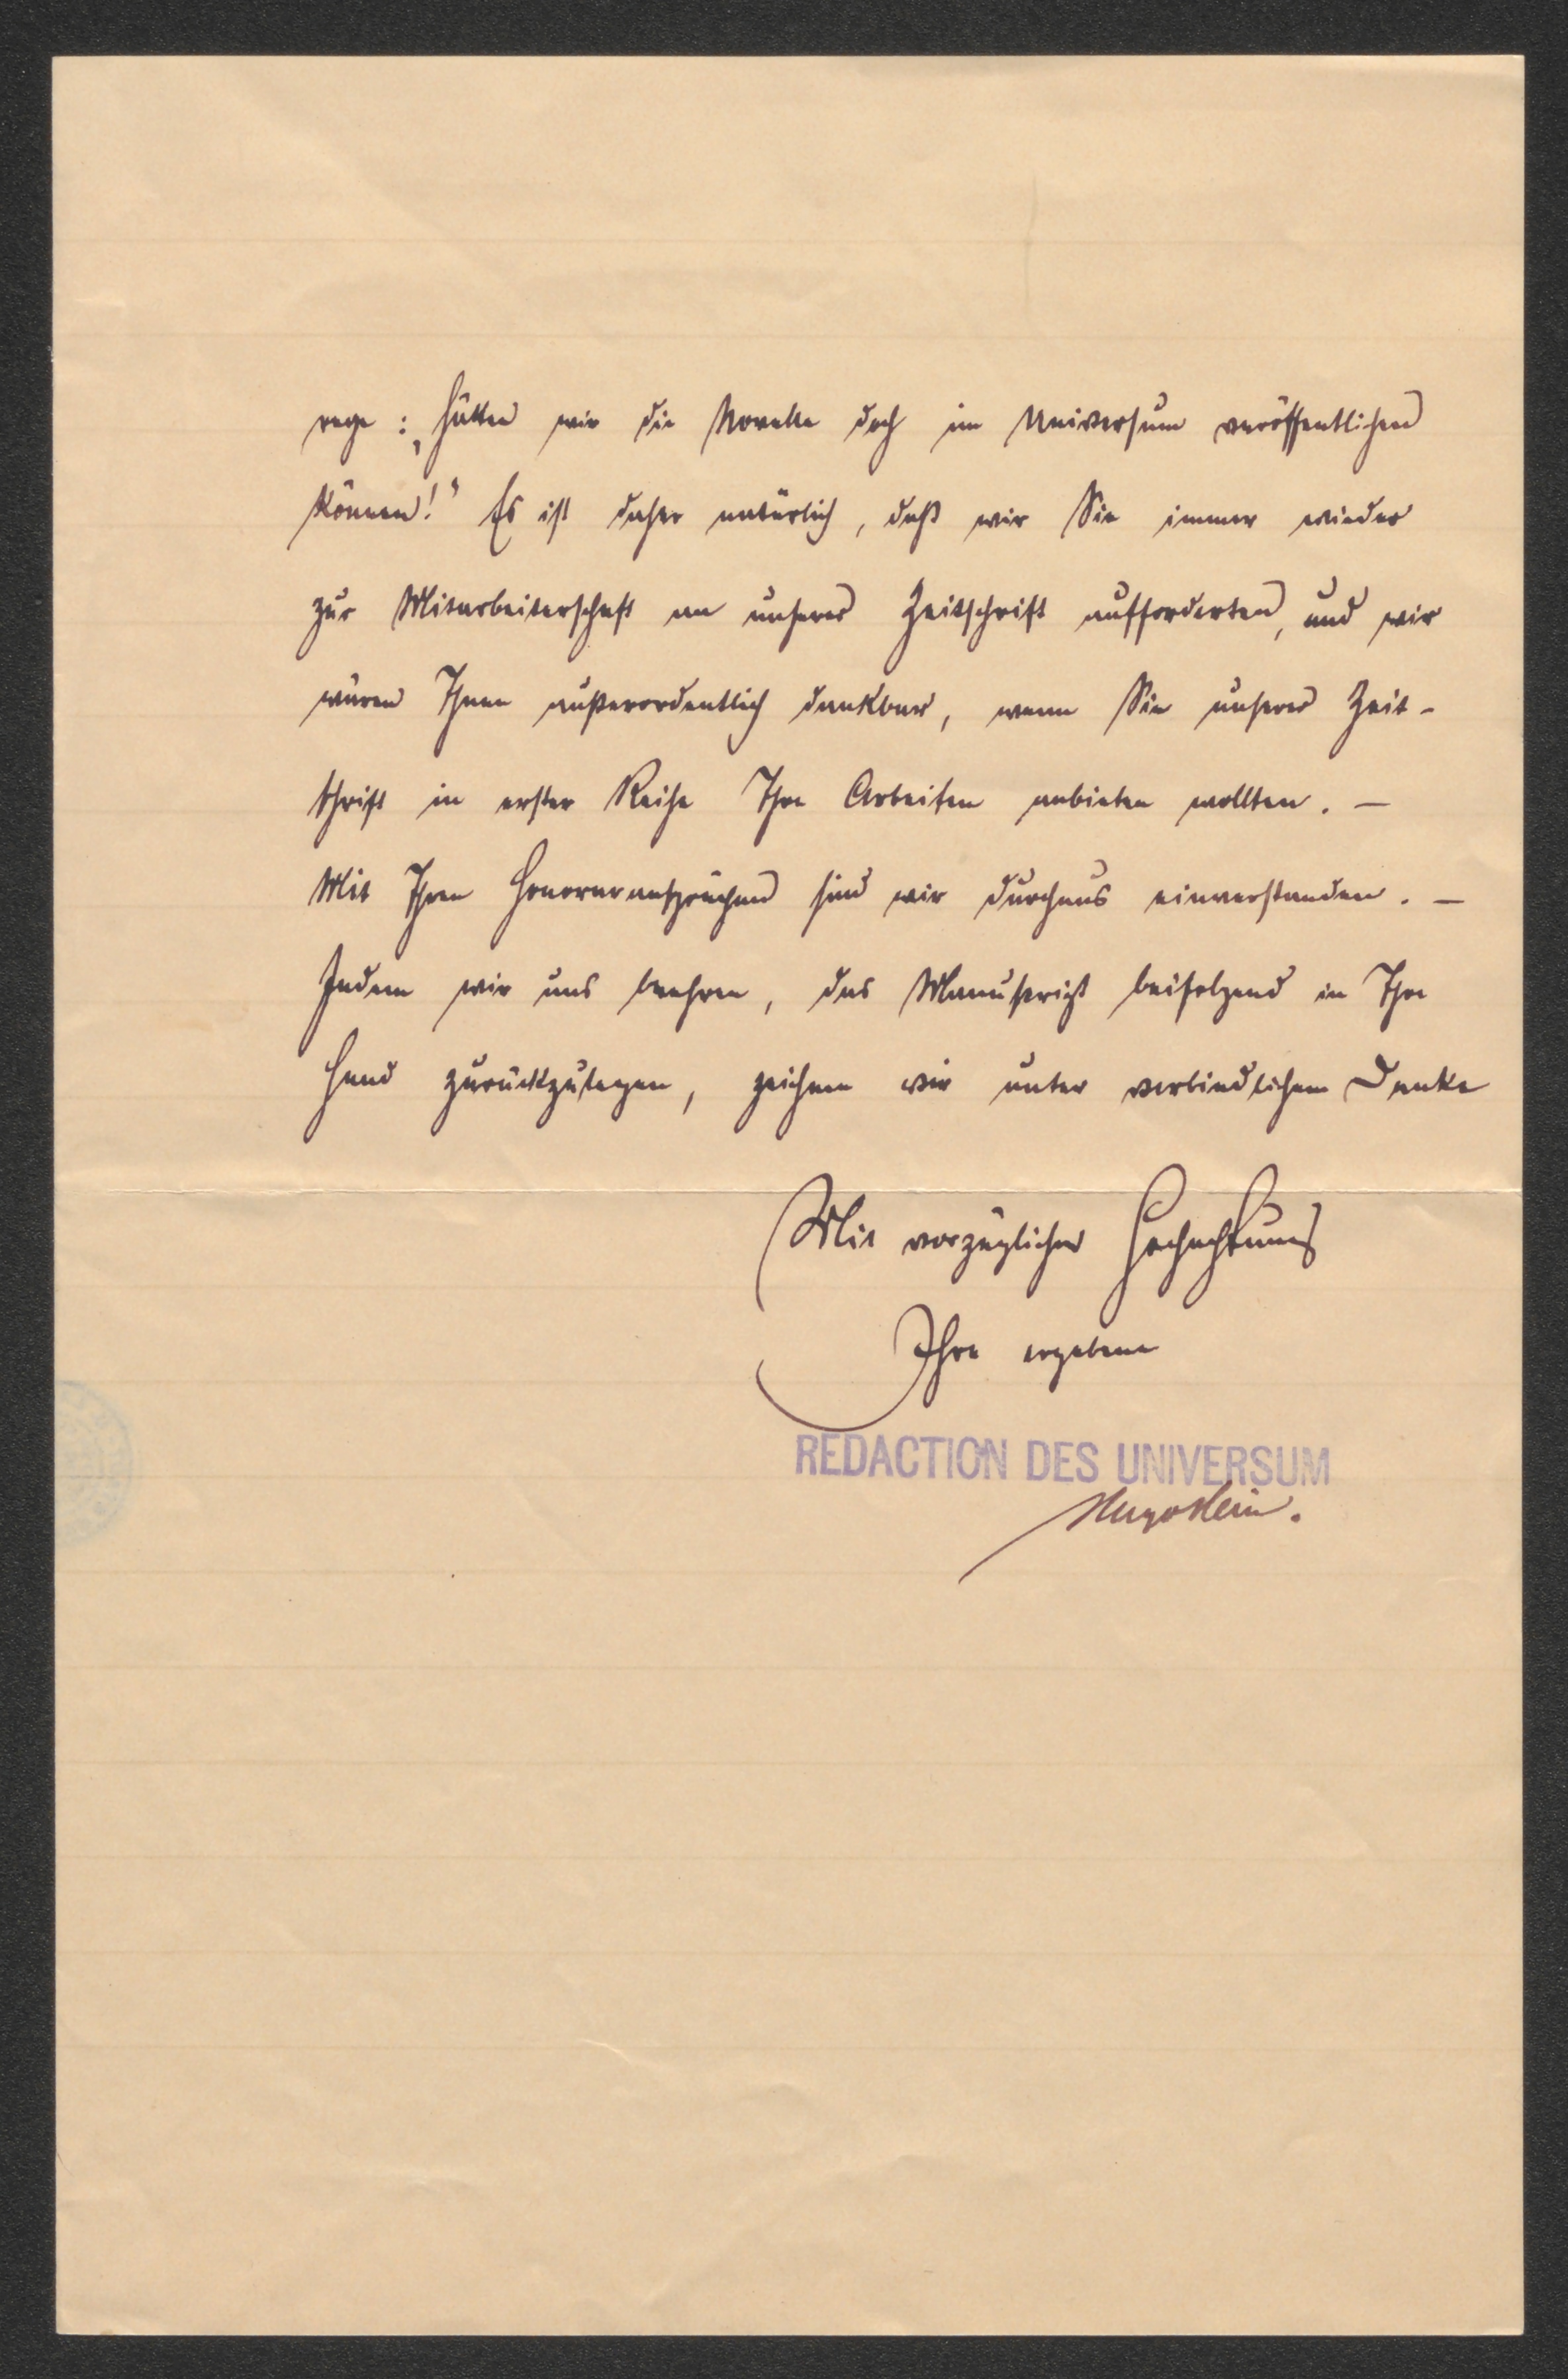 rege: „Hätten wir die Novelle doch im Universum veröffentlichen
können!“ Es ist daher natürlich, daß wir Sie immer wieder
zur Mitarbeiterschaft an unserer Zeitschrift aufforderten, und wir
wären Ihnen außerordentlich dankbar, wenn Sie unserer Zeit-
schrift in erster Reihe Ihre Arbeiten anbieten wollten. —
Mit Ihren Honoraransprüchen sind wir durchaus einverstanden. —
Indem wir uns beehren, das Manuskript beifolgend in Ihre
Hand zurückzulegen, zeichnen wir unter verbindlichem Danke
Mit vorzüglicher Hochachtung
Ihre ergebene
REDACTION DES UNIVERSUM